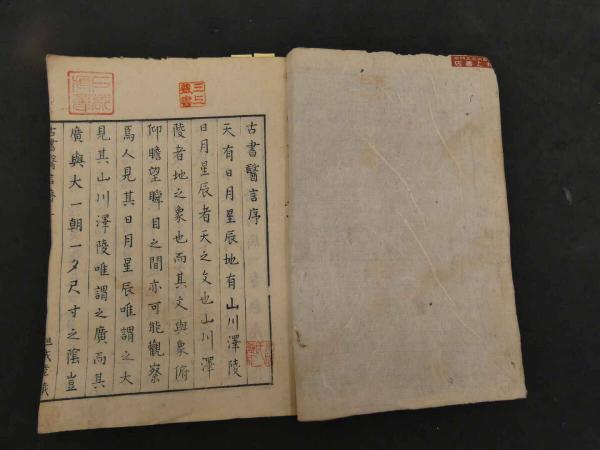 古書醫言序
天有日月星辰地有山川澤陵
日月星辰者天之文也山川澤
陵者地之象也而其文與象俯
仰瞻望瞬目之間亦可能觀察
焉人見其日月星辰唯謂之大
見其山川澤陵唯謂之廣而其
廣與大一朝一夕尺寸之陰豈
古書醫言